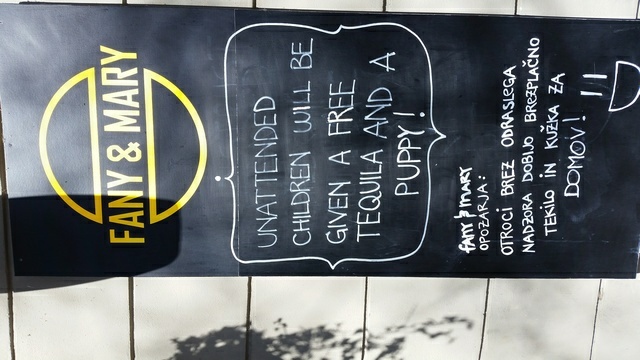 FANY & MARY
UNATTENDED
CHILDREN WILL BE
GIVEN A FREE
TEQUILA AND A
PUPPY!
FANY & MARY
OPOZARJA:
OTROCI BREZ ODRASLEGA
NADZORA DOBIJO BREZPLAČNO
TEKILO IN KUŽKA ZA
DOMOV!